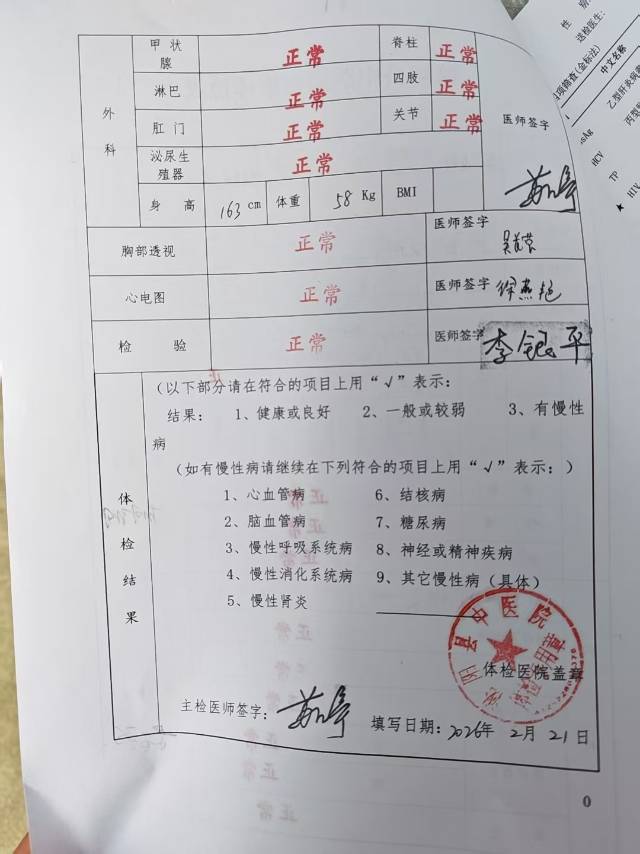 外科
甲状腺 正常 脊柱 正常
淋巴 正常 四肢 正常
肛门 正常 关节 正常
医师签字
泌尿生殖器 正常
身高 163 cm 体重 58 Kg BMI
胸部透视 正常 医师签字
心电图 正常 医师签字 徐燕艳
检验 正常 医师签字 李银平
体检结果
(以下部分请在符合的项目上用“√”表示:
结果: 1、健康或良好 2、一般或较弱 3、有慢性
病
(如有慢性病请继续在下列符合的项目上用“√”表示:)
1、心血管病 6、结核病
2、脑血管病 7、糖尿病
3、慢性呼吸系统病 8、神经或精神疾病
4、慢性消化系统病 9、其它慢性病(具体)
5、慢性肾炎
县中医院
体检专用章
体检医院盖章
主检医师签字:
填写日期: 2026年 2月 21日
0
性
送检医生:
四项筛查(金标法)
中文名称
乙型肝炎病毒
丙型
HCV
TP
★ HIV